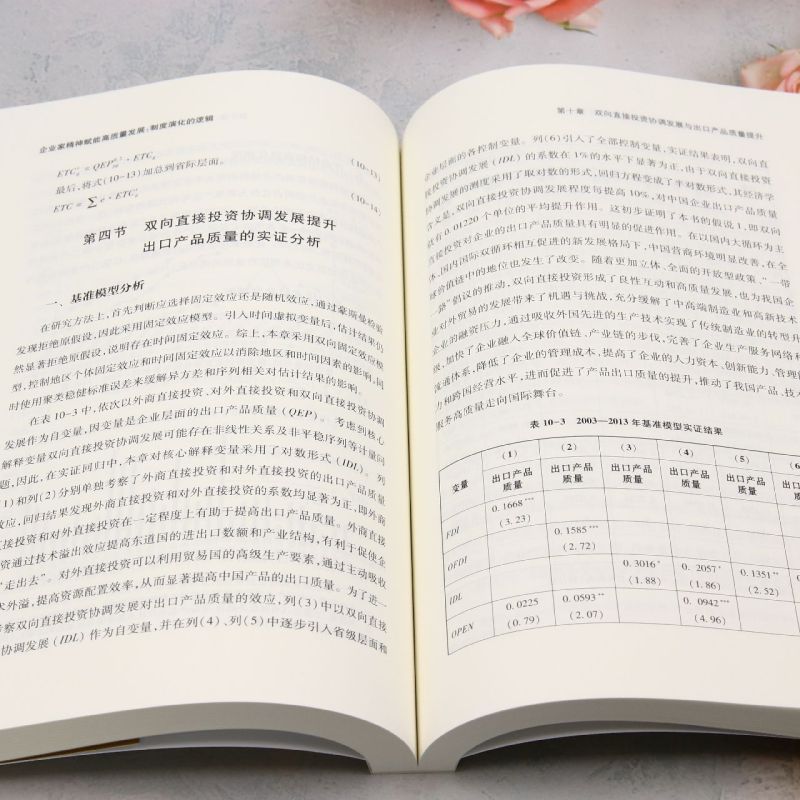 企业家精神赋能高质量发展:制度演化的逻辑
(10-13)
最后,将式(10-13)加总到省际层面。
(10-14)
第四节 双向直接投资协调发展提升
出口产品质量的实证分析
一、基准模型分析
在研究方法上,首先判断应选择固定效应还是随机效应,通过豪斯曼检验
发现拒绝原假设,因此采用固定效应模型。引入时间虚拟变量后,估计结果仍
然显著拒绝原假设,说明存在时间固定效应。综上,本章采用双向固定效应模
型,控制地区个体固定效应和时间固定效应以消除地区和时间因素的影响,同
时使用聚类稳健标准误差来缓解异方差和序列相关对估计结果的影响。
在表10-3中,依次以外商直接投资、对外直接投资和双向直接投资协调
发展作为自变量,因变量是企业层面的出口产品质量(QEP)。考虑到核心
解释变量双向直接投资协调发展可能存在非线性关系及非平稳序列等计量问
题,因此,在实证回归中,本章对核心解释变量采用了对数形式(IDL)。列
(1)和列(2)分别单独考察了外商直接投资和对外直接投资的出口产品质量
效应,回归结果发现外商直接投资和对外直接投资的系数均显著为正,即外商
直接投资和对外直接投资在一定程度上有助于提高出口产品质量。外商直接
资通过技术溢出效应提高东道国的进出口数额和产业结构,有利于促使企
“走出去”。对外直接投资可以利用贸易国的高级生产要素,通过主动吸收
术外溢,提高资源配置效率,从而显著提高中国产品的出口质量。为了进一
考察双向直接投资协调发展对出口产品质量的效应,列(3)中以双向直接
协调发展(IDL)作为自变量,并在列(4)、列(5)中逐步引入省级层面和
第十章 双向直接投资协调发展与出口产品质量提升
企业层面的各控制变量。列(6)引入了全部控制变量,实证结果表明,双向直
接投资协调发展(IDL)的系数在1%的水平下显著为正,由于双向直接投资
协调发展的测度采用了取对数的形式,回归方程变成了半对数形式,其经济学
含义是,双向直接投资协调发展程度每提高10%,对中国企业出口产品质量
就有0.01220个单位的平均提升作用。这初步证明了本书的假设1,即双向
直接投资对企业的出口产品质量具有明显的促进作用。在以国内大循环为主
体、国内国际双循环相互促进的新发展格局下,中国营商环境明显改善,在全
球价值链中的地位也发生了改变。随着更加立体、全面的开放型政策、“一带
一路”倡议的推动,双向直接投资形成了良性互动和高质量发展,也为我国企
业对外贸易的发展带来了机遇与挑战,充分缓解了中高端制造业和高新技术
企业的融资压力,通过吸收外国先进的生产技术实现了传统制造业的转型升
级,加快了企业融入全球价值链、产业链的步伐,完善了企业生产服务网络和
流通体系,降低了企业的管理成本,提高了企业的人力资本、创新能力、管理能
力和跨国经营水平,进而促进了产品出口质量的提升,推动了我国产品、技术
服务高质量走向国际舞台。
表10-3 2003—2013年基准模型实证结果
变量 (1) (2) (3) (4) (5) (6
出口产品 出口产品 出口产品 出口产品 出口产品 出口
质量 质量 质量 质量 质量
FDI 0.1668***
(3.23)
OFDI 0.1585***
(2.72)
IDL 0.3016* 0.2057* 0.1351**
(1.88) (1.86) (2.52)
OPEN 0.0225 0.0593** 0.0942***
(0.79) (2.07) (4.96)